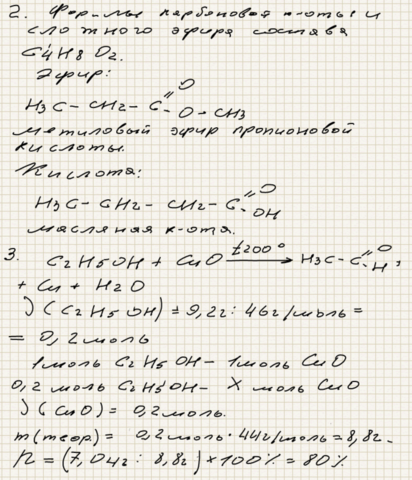 2. Формулы карбоновой к-оты и
сложного эфира состава
C4H8O2.
Эфир:
O
H3C - CH2 - C - O - CH3
метиловый эфир пропионовой
кислоты.
Кислота:
H3C - CH2 - CH2 - C O
OH
масляная к-ота.
3. C2H5OH + CuO t200° → H3C - C O H,
+ Cu + H2O
ν(C2H5OH) = 9,2г : 46г/моль =
= 0,2моль
1моль C2H5OH - 1моль CuO
0,2 моль C2H5OH - X моль CuO
ν(CuO) = 0,2моль.
m(теор) = 0,2моль · 44г/моль = 8,8г.
η = (7,04г : 8,8г) × 100% = 80%